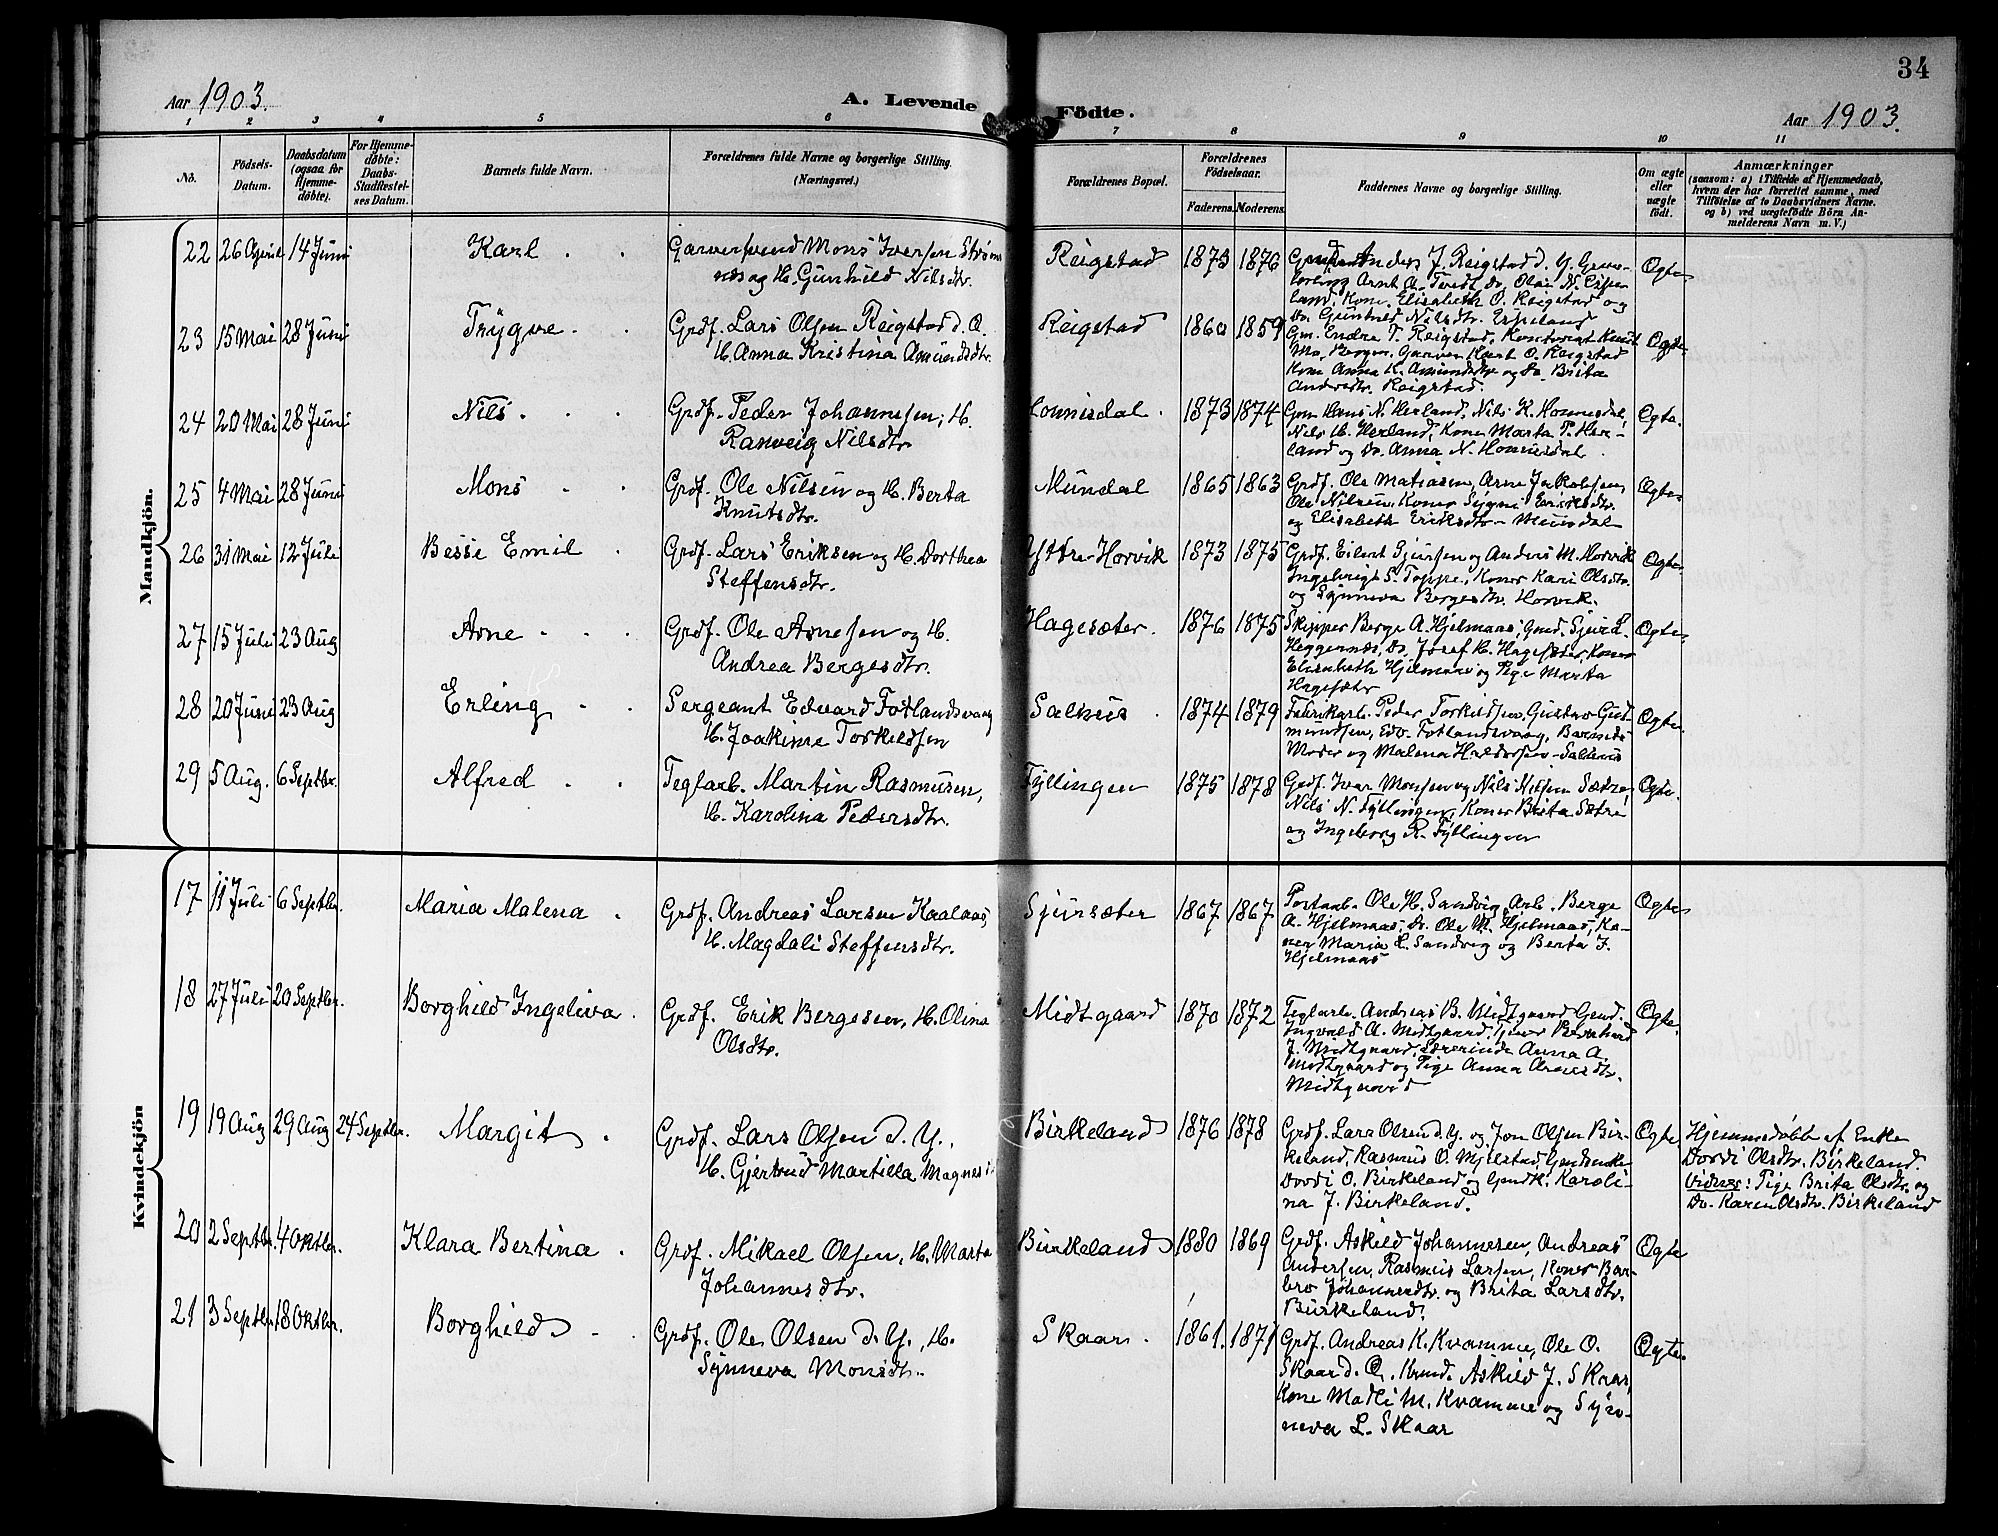 34
Aar 1903.
A. Levende
Födte.
Aar 1903.
1 2 3 4 5 6 7 8 9 10 11
No.
Födsels-
Datum.
Daabsdatum
(ogsaa for
Hjemme-
døbte).
For Hjemme-
døbte:
Daabs-
Stadfæstel-
ses Datum.
Barnets fulde Navn.
Forældrenes fulde Navne og borgerlige Stilling.
(Næringsvei.)
Forældrenes Bopæl.
Forældrenes
Födselsaar.
Faderens. Moderens.
Faddernes Navne og borgerlige Stilling.
Om ægte
eller
uægte
født.
Anmærkninger
(saasom: a) i Tilfælde af Hjemmedaab,
hvem der har forrettet samme, med
Tilføielse af to Daabsvidners Navne.
og b) ved uægtefödte Börn An-
melderens Navn m. V.)
Mandkjön.
22 26 April 14 Juni
Karl
Garversvend Mons Iversen Strøm
næs og H. Gunhild Nilsdtr.
Reigstad
1873 1876
Anders J. Reigstad d. Y.
Arnt A. Tvedt, Do. Olai N. Espe-
land, Kone Elisabeth O. Reigstad og
Do. Gunhild Nilsdtr. Espeland
Ægte
23 15 Mai 28 Juni
Trygve
Grdf. Lars Olsen Reigstad d. Æ.
H. Anna Kristina Amundsdtr.
Reigstad
1860 1859
Gm. Endre T. Reigstad, Kontorist Knut
Mo, Bergen, Garver Karl O. Reigstad
Kone Anna K. Amundsdtr og Do. Brita
Andersdtr. Reigstad.
Ægte.
24 20 Mai 28 Juni
Nils
Grdf. Peder Johannesen, H.
Ranveig Nilsdtr
Honnisdal.
1873 1874
Gm. Hans N. Herland, Nils K. Honnisdal,
Nils H. Herland, Kone Marta P. Her-
land og Do. Anna N. Honnisdal.
Ægte.
25 4 Mai 28 Juni
Mons
Grdf. Ole Nilsen og H. Berta
Knutsdtr.
Mundal
1865 1863
Grdf. Ole Matiasen, Arne Jakobsen,
Ole Nilsen, Koner Sygni Eriksdtr.
og Elisabeth Eriksdtr - Mundal
Ægte.
26 31 Mai 12 Juli
Besse Emil
Grdf. Lars Eriksen og H. Dorthea
Steffensdtr.
Yttre-Horvik
1873 1875
Grdf. Eilert Sjursen og Anders M. Horvik
Ingebrigt S. Toppe, Koner Kari Olsdtr.
og Synneva Bergesdtr. Horvik.
Ægte.
27 15 Juli 23 Aug
Arne
Grdf. Ole Arnesen og H.
Andrea Bergesdtr.
Hagesæter.
1876 1875
Skipper Berge A. Hjelmaas, Gmd. Sjur L.
Heggernæs, Do. Josef H. Hagesæter, Kone
Elisabeth Hjelmaas og Pige Marta
Hagesæter
Ægte.
28 20 Juni 23 Aug
Erling
Sergeant Edvard Fotlandsvaag
H. Joakime Torkildsen
Salhus.
1874 1879
Fabrikarb. Peder Torkildsen, Gustav Gud-
mundsen, Edv. Fotlandsvaag, Barnets
Moder og Malena Haldorsen - Salhus
Ægte.
29 5 Aug. 6 Septbr.
Alfred
Teglarb. Martin Rasmusen,
H. Karolina Pedersdtr.
Fyllingen
1875 1878
Grdf. Ivar Monsen og Nils Nilsen Sætre,
Nils N. Fyllingen, Koner Brita Sætre
og Ingeborg R. Fyllingen
Ægte.
Kvindekjön
17 11 Juli 6 Septbr.
Maria Malena
Grdf. Andreas Larsen Kaalaas,
H. Magdali Steffensdtr.
Sjursæter
1867 1867
Ole H. Sandvig, Arb. Berge
A. Hjelmaas, Do. Ole M. Hjelmaas, Ko-
ner Maria L. Sandvig og Berta J.
Hjelmaas
Ægte
18 27 Juli 20 Septbr.
Borghild Ingeliva.
Grdf. Erik Bergesen, H. Olina
Olsdtr.
Midtgaard
1870 1872
Teglarb. Andreas B. Midtgaard Gmd.
Ingvald A. Midtgaard, Bernhard
J. Midtgaard, Lærerinde Anna A.
Midtgaard og Pige Anna Arnesdtr.
Midtgaard
Ægte.
19 19 Aug 29 Aug 24 Septbr.
Margit
Grdf. Lars Olsen d. Y.,
H. Gjertrud Martilla
Birkeland
1876 1878
Grdf. Lars Olsen d. Y. og Jon Olsen Bir-
keland, Rasmus O. Mjelstad, Gmdenke
Dordi O. Birkeland og Gmdk. Karoli-
na J. Birkeland.
Ægte
Hjemmedøbt af Enke
Dordi Olsdtr. Birkeland.
Vidner: Pige Brita Olsdtr. og
Do. Karen Olsdtr. Birkeland
20 2 Septbr. 4 Oktbr.
Klara Bertina
Grdf. Mikael Olsen, H. Marta
Johannesdtr.
Birkeland
1880 1869
Grdf. Askild Johannesen, Andreas
Andersen, Rasmus Larsen, Koner Bar-
bro Johannesdtr. og Brita Larsdtr.
Birkeland.
Ægte
21 3 Septbr. 18 Oktbr.
Borghild
Grdf. Ole Olsen d. Y., H.
Synneva Monsdtr.
Skaar.
1861. 1871
Grdf. Andreas K. Kvamme, Ole O.
Skaar d. Æ. Gmd. Askild J. Skaar,
Kone Madli M. Kvamme og Syn-
neva L. Skaar
Ægte.